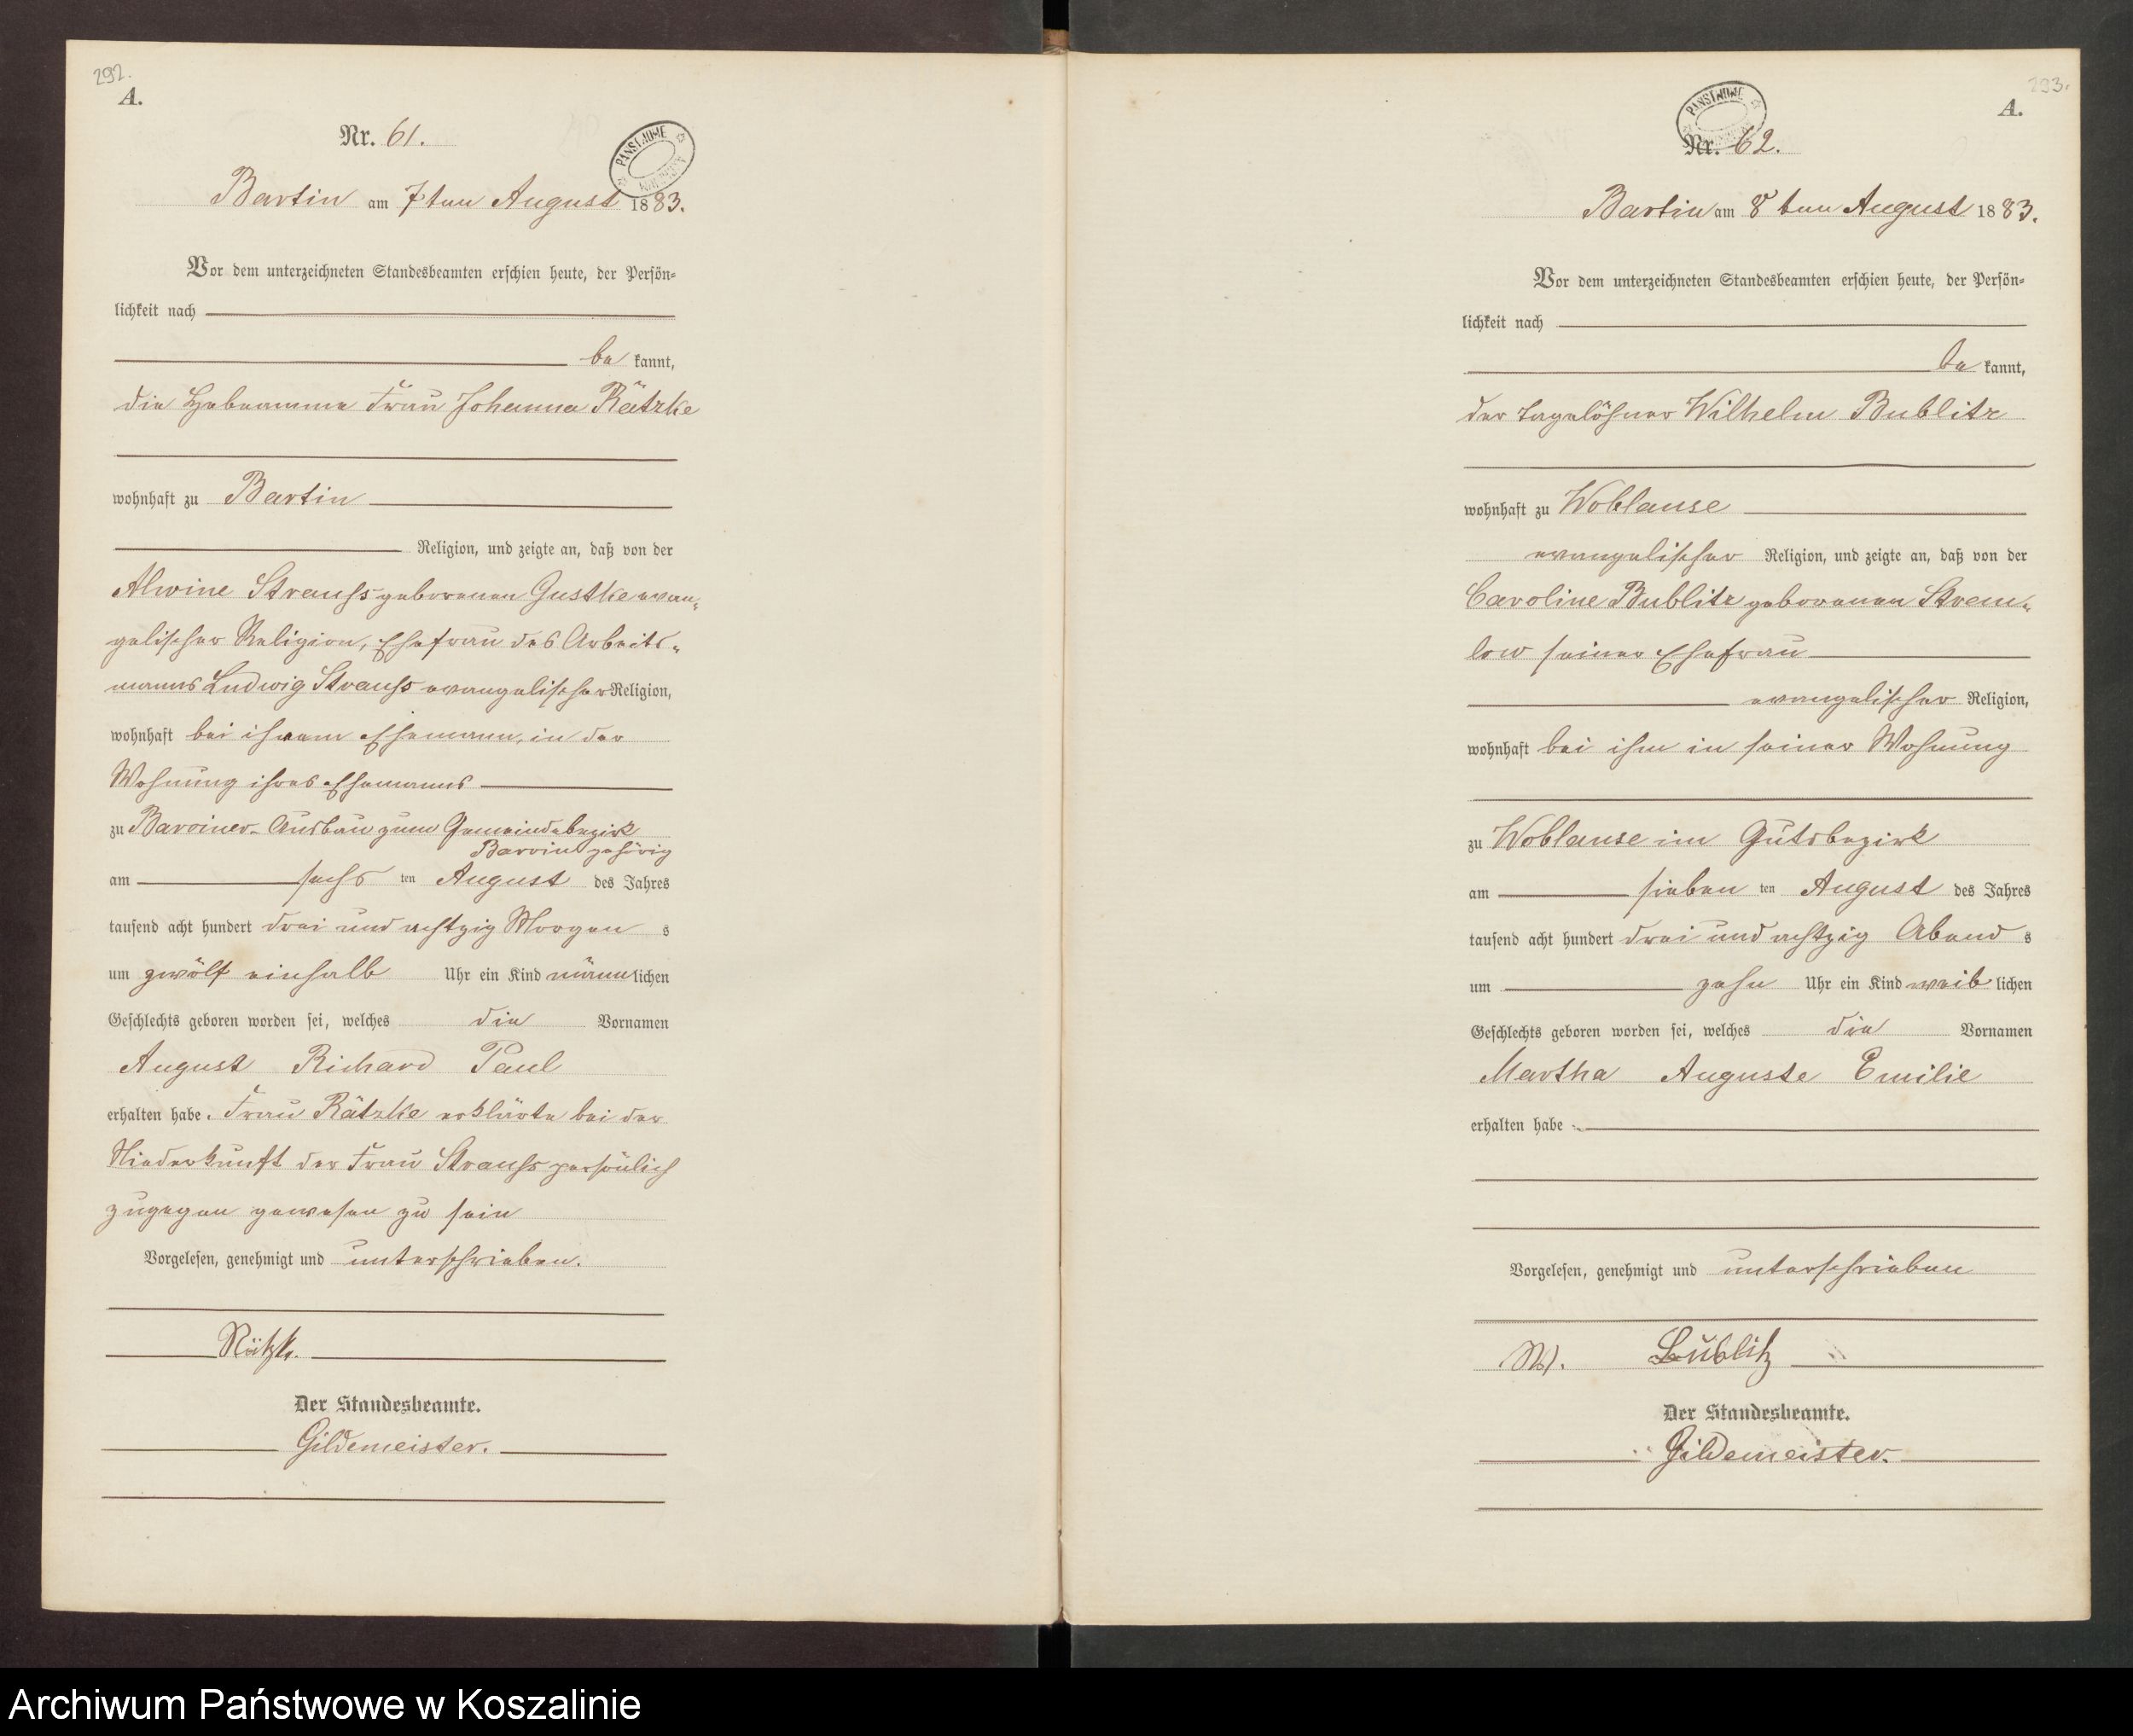 292.
A.
Nr. 61.
PANSTWOWE
Bartin am 7ten August 1883.
Vor dem unterzeichneten Standesbeamten erschien heute, der Persön-
lichkeit nach
be kannt,
die Hebeamme Frau Johanna Rätzke
wohnhaft zu Bartin
Religion, und zeigte an, daß von der
Alwine Strauss geborenen Gustke evan-
gelischer Religion, Ehefrau des Arbeits-
manns Ludwig Strauss evangelischer Religion,
wohnhaft bei ihrem Ehemann, in der
Wohnung ihres Ehemanns
zu Barviner-Ausbau zum Gemeindebezirk
Barvin gehörig
am sechs ten August des Jahres
tausend acht hundert drei und achtzig Morgen s
um zwölf einhalb Uhr ein Kind männ lichen
Geschlechts geboren worden sei, welches die Vornamen
August Richard Paul
erhalten habe. Frau Rätzke erklärte bei der
Niederkunft der Frau Strauss persönlich
zugegen gewesen zu sein
Vorgelesen, genehmigt und unterschrieben.
Rätzke.
Der Standesbeamte.
Gildemeister.
293.
A.
PANSTWOWE
Nr. 62.
Bartin am 8ten August 1883.
Vor dem unterzeichneten Standesbeamten erschien heute, der Persön-
lichkeit nach
be kannt,
der Tagelöhner Wilhelm Bublitz
wohnhaft zu Woblanse
evangelischer Religion, und zeigte an, daß von der
Caroline Bublitz geborenen Strem-
low seiner Ehefrau
evangelischer Religion,
wohnhaft bei ihm in seiner Wohnung
zu Woblanse im Gutsbezirk
am sieben ten August des Jahres
tausend acht hundert drei und achtzig Abend s
um zehn Uhr ein Kind weib lichen
Geschlechts geboren worden sei, welches die Vornamen
Martha Auguste Emilie
erhalten habe.
Vorgelesen, genehmigt und unterschrieben
W. Bublitz
Der Standesbeamte.
Gildemeister.
Archiwum Państwowe w Koszalinie